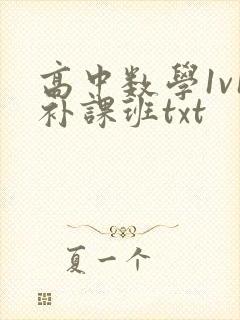 高中数學1v1
补課班txt
夏一个